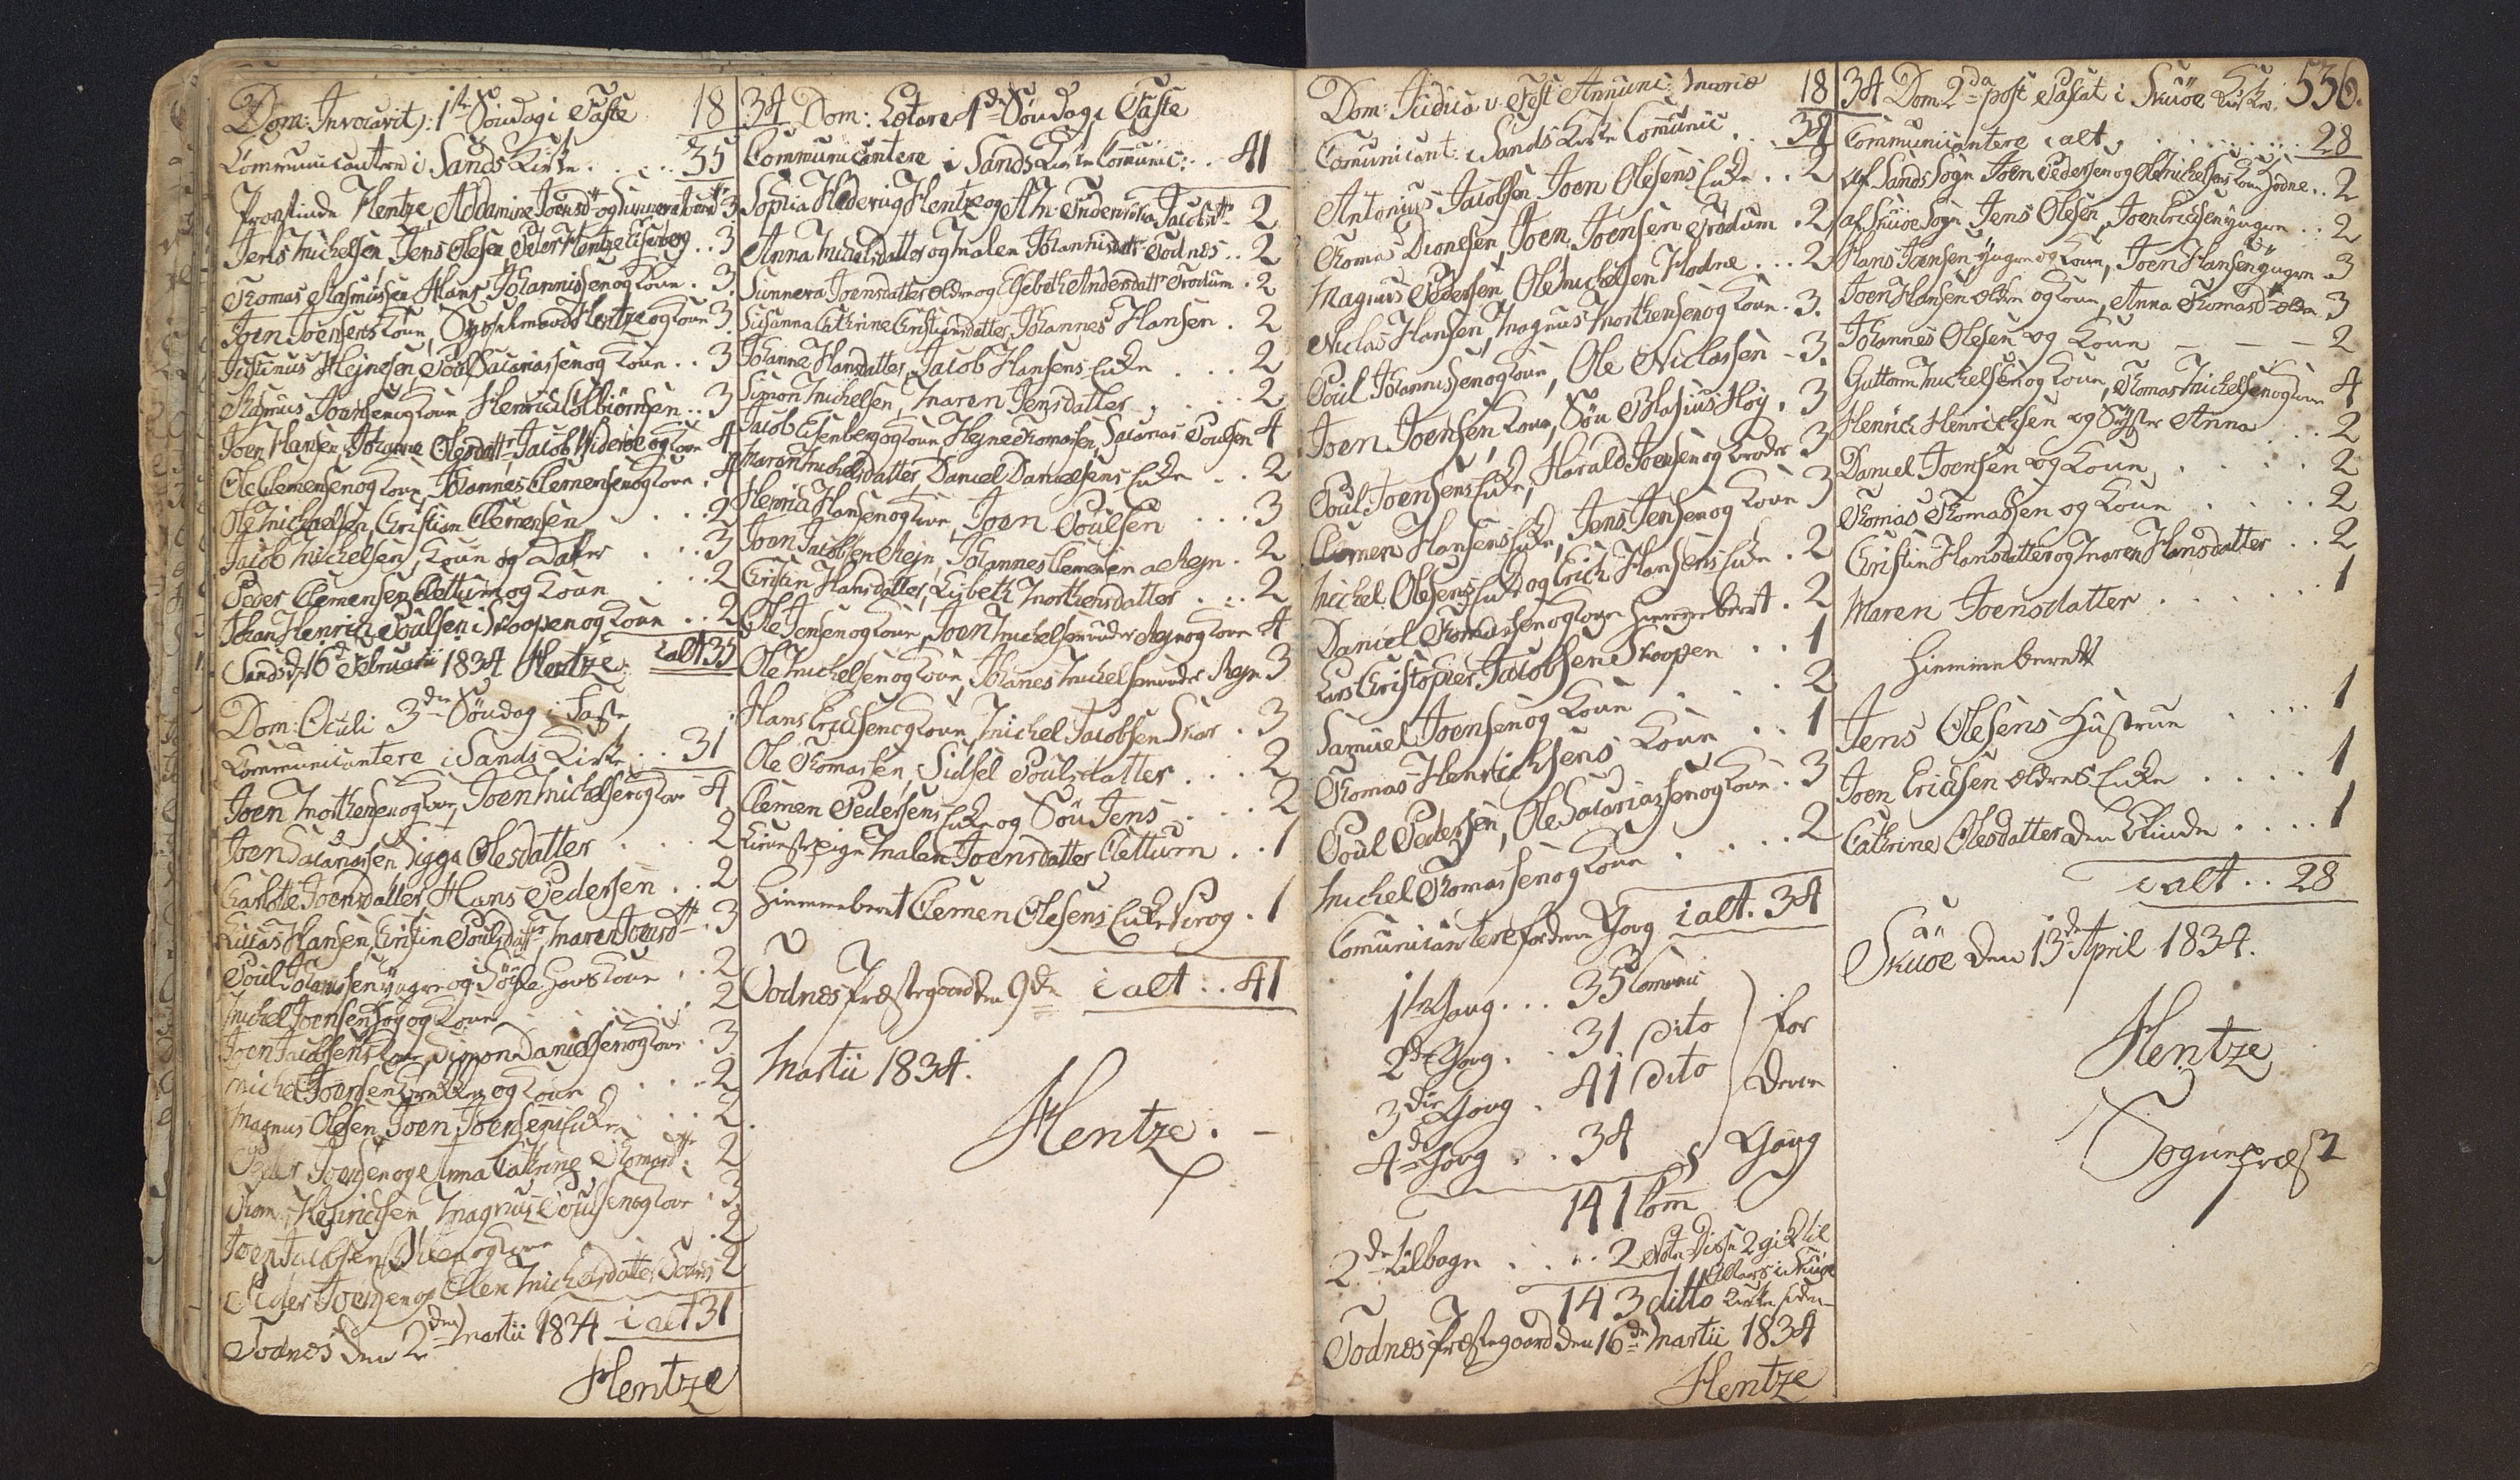 Dom: Invocavit): 1ste Søndag i Faste 18
Communicantere i Sands Kirke . . . . 35
Provstinde Hentze, Addamine Joensdr og Sunneva Joensdr 3
Jens Michelsen, Jens Olesen, Peder Hentze Eisenberg . . 3
Thomas Rasmussen, Hans Johannissen og Kone . 3
Joen Joensens Kone, Sysselmand Hentze og Kone 3
Justinus Hejnesen, Poul Sacariassen og Kone . . 3
Rasmus Joensen og Kone, Henric Colbiörnsen . . 3
Joen Hansen, Johanne Olesdatt: Jacob Wideröe og Kone 4
Ole Clemensen og Kone, Johannes Clemensen og Kone . 4
Ole Michaelsen, Christian Clemensen . . . 2
Jacob Michelsen, Kone og Datter . . . 3
Peder Clemensen Clettum og Kone . . . 2
Johan Henrich Poulsen i Skoopen og Kone . . 2
Sands d. 16d Februarii 1834 Hentze. ialt 35
Dom: Oculi 3die Søndag i Faste
Communicantere i Sands Kirke . . 31
Joen Mortensen og Kone, Joen Michelsen og Kone 4
Joen Sacariasen, Sigga Olesdatter . . . 2
Carlote Joensdatter, Hans Pedersen . . 2
Lucas Hansen, Cristin Poulsdatt, Maren Joensdtt . 3
Poul Johanissen yngre og Söjle Hans Kone . . 2
Michel Joensen Høy og Kone . . . . . 2
Joen Jacobsens Kone, Simon Danielsen og Kone . 3
Michel Joensen og Kone . . . . 2
Magnus Olesen, Joen Joensens Enke . . . 2
Peder Joensen og Anna Catrine Thomasdtt: 2
Thom: Henrichsen, Magnus Poulsen og Kone . 3
Joen Jacobsen og Kone . . . . 2
Peder Joensen og Ellen Michelsdatter Todnes 2
Todnes den 2den Martii 1834 ialt 31
Hentze
34 Dom: Lætare 4de Søndag i Faste
Communicantere i Sands Kirke Communic: . . 41
Sophia Hedevig Hentze og Jacobsdtr 2
Anna Michelsdatter og Malen Johannisdatt: Todnes . . 2
Sunneva Joensdatter ældre og Elsebeth Andersdatt Trödum . 2
Susanna Cathrine Christiansdatter, Johannes Hansen . 2
Johanne Hansdatter, Jacob Hansens Enke . . . 2
Simon Michelsen, Maren Jensdatter . . . . 2
Jacob Eisenberg og Kone, Hejne Thomassen, Sacarias Poulsen 4
Maren Michelsdatter, Daniel Danielsens Enke . . 2
Henric Hansen og Kone, Joen Poulsen . . . 3
Joen Jacobsen a Rejn, Johannes Clemensen a Rejn . 2
Cristin Hansdatter, Lisbeth Mortensdatter . . . 2
Ole Jensen og Kone, Joen Michelsen under Rejn og Kone 4
Ole Michelsen og Kone, Johanes Michelsen under Rejn 3
Hans Ericksen og Kone, Michel Jacobsen Skar . 3
Ole Thomassen, Sidsel Poulsdatter . . . 2
Clemen Pedersens Enke og Søn Jens . . . 2
Tienestepige Malen Joensdatter Clettum . . 1
Hiemmeberet Clemen Olesens Enke Trøg . 1
Todnes Præstegaard den 9de ialt . . 41
Martii 1834.
Hentze. –
Dom: Judica v. Fest Annunc: Mariæ 18
Comunicant: i Sands Kirke Comunic . . 34
Antonius Jacobsen, Joen Olesens Enke . . 2
Thomas Dionesen, Joen Joensen Trödum . 2
Magnus Pedersen, Ole Michelsen Hodne . . . 2
Niclas Hansen, Magnus Mortensen og Kone . 3.
Poul Johannissen og Kone, Ole Niclassen – 3.
Joen Joensen, Kone, Søn Blasius Høÿ . 3
Poul Joensens Enke, Harald Joensen og Broder 3
Clemen Hansens Enke, Jens Jensen og Kone 3
Michel Olesens Enke og Erich Hansens Enke . 2
Daniel Thomassen og Kone hiemmeberet . 2
Lars Christopher Jacobsen Skoopen . . 1
Samuel Joensen og Kone . . . 2
Thomas Henrichsens Kone . . 1
Poul Pedersen, Ole Sacariassen og Kone . 3
Michel Thomassen og Kone . . . . 2
Comunicantere for denne Gang ialt . 34
1ste Gang . . . 35 Comuni
2den Gang . . 31 Dito
3die Gang . 41 Dito
4de Gang . . 34
for
denne
Gang
141 Com
2de tilbage . . . 2 Nota Disse 2 gik til
Alters i Skuöe
143 ditto Kirke siden
Todnes Præstegaard den 16de Martii 1834
Hentze
34 Dom 2da post Pascat i Skuöe Kirke. 536.
Communicantere ialt . . . . . . . 28
Af Sands Sogn Joen Pedersen og Ole Michelsens Kone Hodne . . 2
af Skuöe Sogn Jens Olesen, Joen Ericksen yngere . . 2
Hans Joensen yngre og Kone, Joen Hansen yngere . 3
Joen Hansen ældre og Kone, Anna Thomasdtr ældre 3
Johannes Olesen og Kone – – – 2
Guttorm Michelsen og Kone, Thomas Michelsen og Kone 4
Henrich Henrichsen og Syster Anna . . . 2
Daniel Joensen og Kone . . . . 2
Thomas Thomassen og Kone . . . . 2
Christin Hansdatter og Maren Hansdatter . . 2
Maren Joensdatter . . . . . 1
Hiemmeberett
Jens Olesens Hustrue . . . . 1
Joen Ericksen ældres Enke . . . . 1
Cathrine Olesdatter den Blinde . . . . 1
ialt . . 28
Skuöe den 13de April 1834.
Hentze
Sognepræst